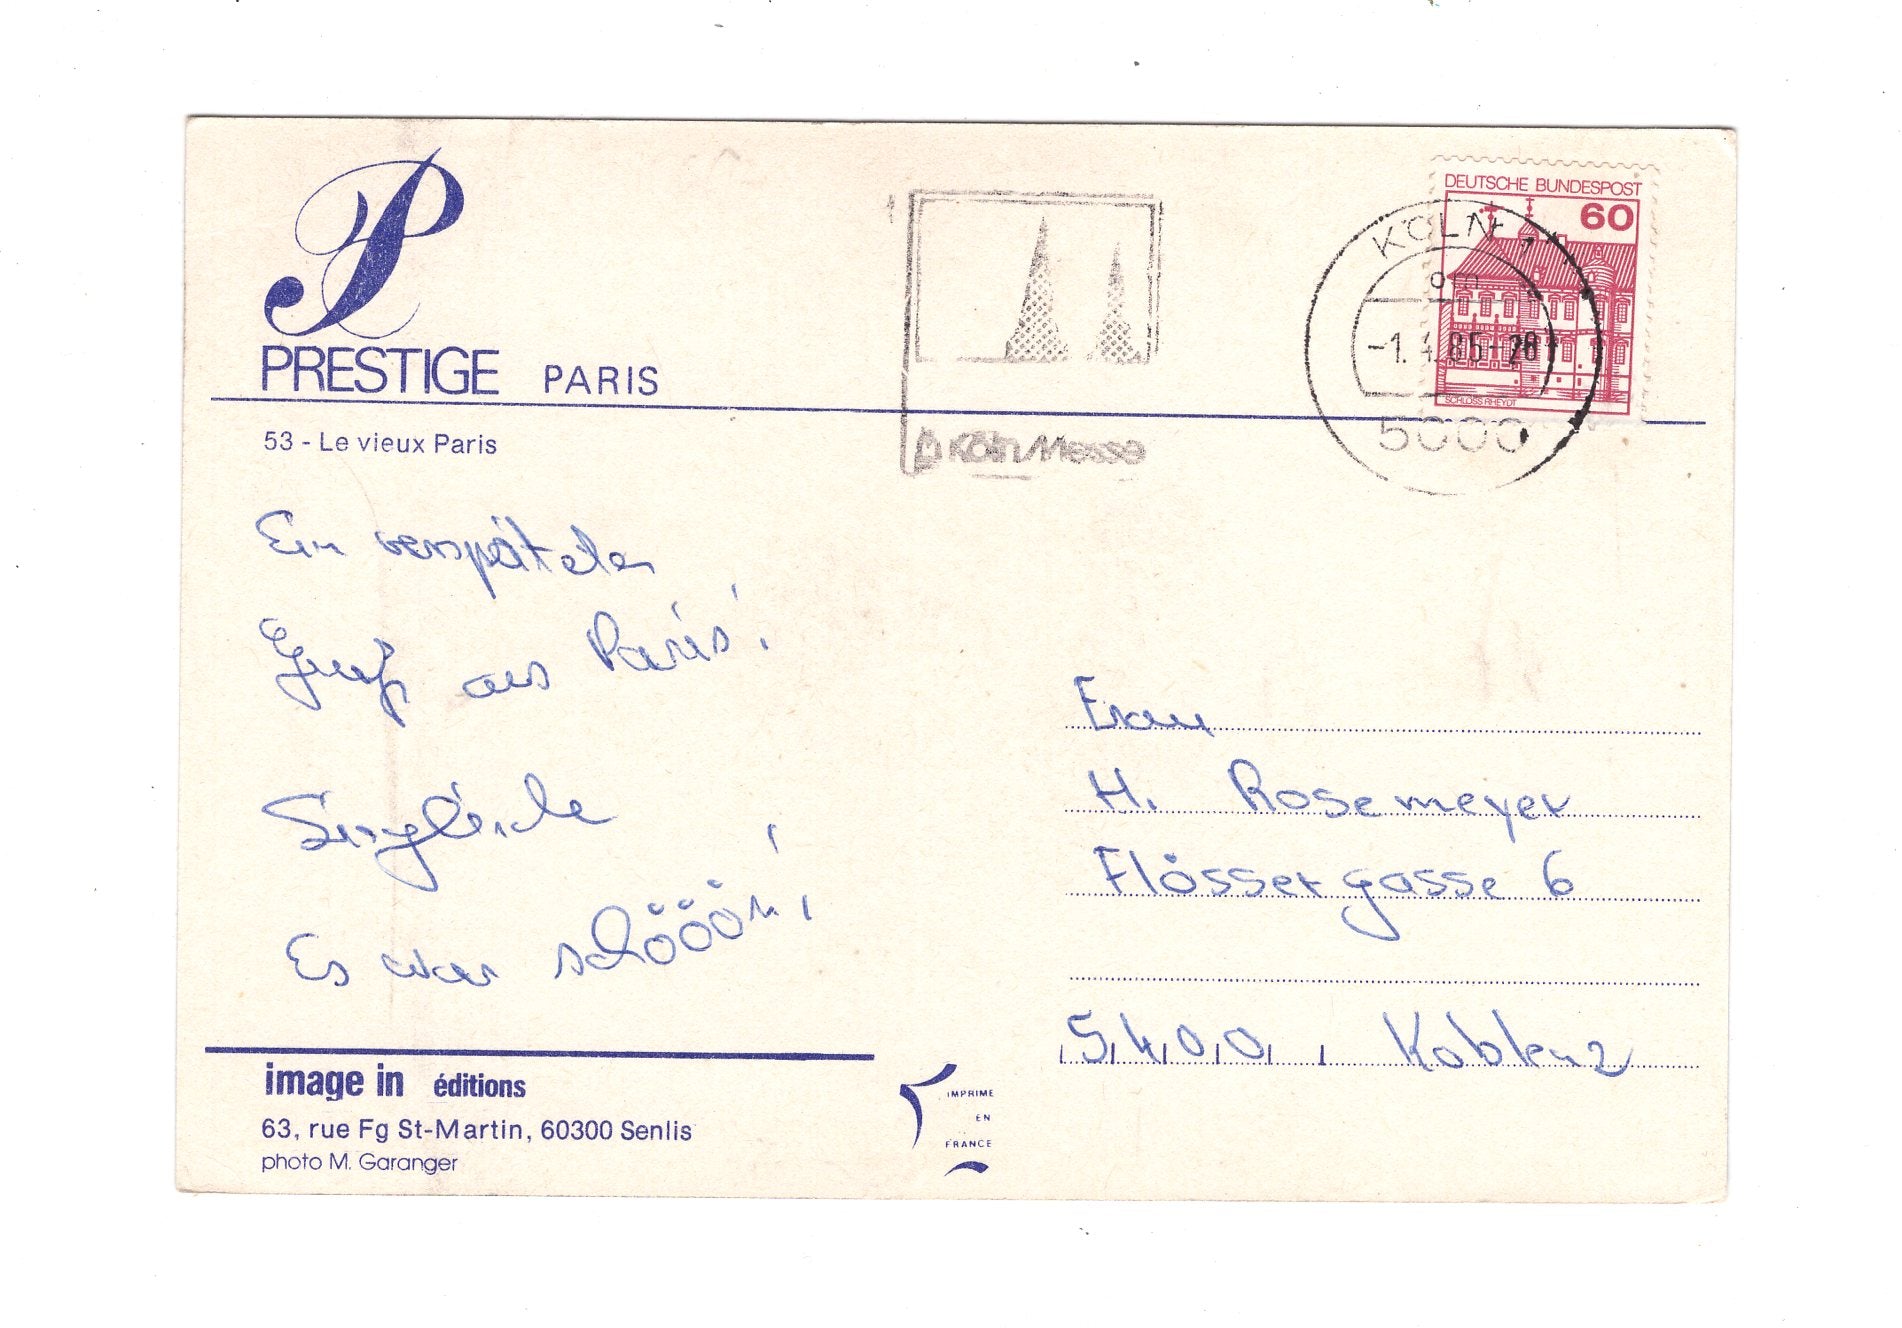 P
PRESTIGE PARIS
53 - Le vieux Paris
Ein verspäteter
Gruß aus Paris!
Es war schööön!
image in éditions
63, rue Fg St-Martin, 60300 Senlis
photo M. Garanger
IMPRIME
EN
FRANCE
Köln Messe
DEUTSCHE BUNDESPOST
60
SCHLOSS RHEYDT
KÖLN 1
om
-1. 4.85-20
5000
Frau
H. Rosemeyer
Flössergasse 6
5400 Koblenz